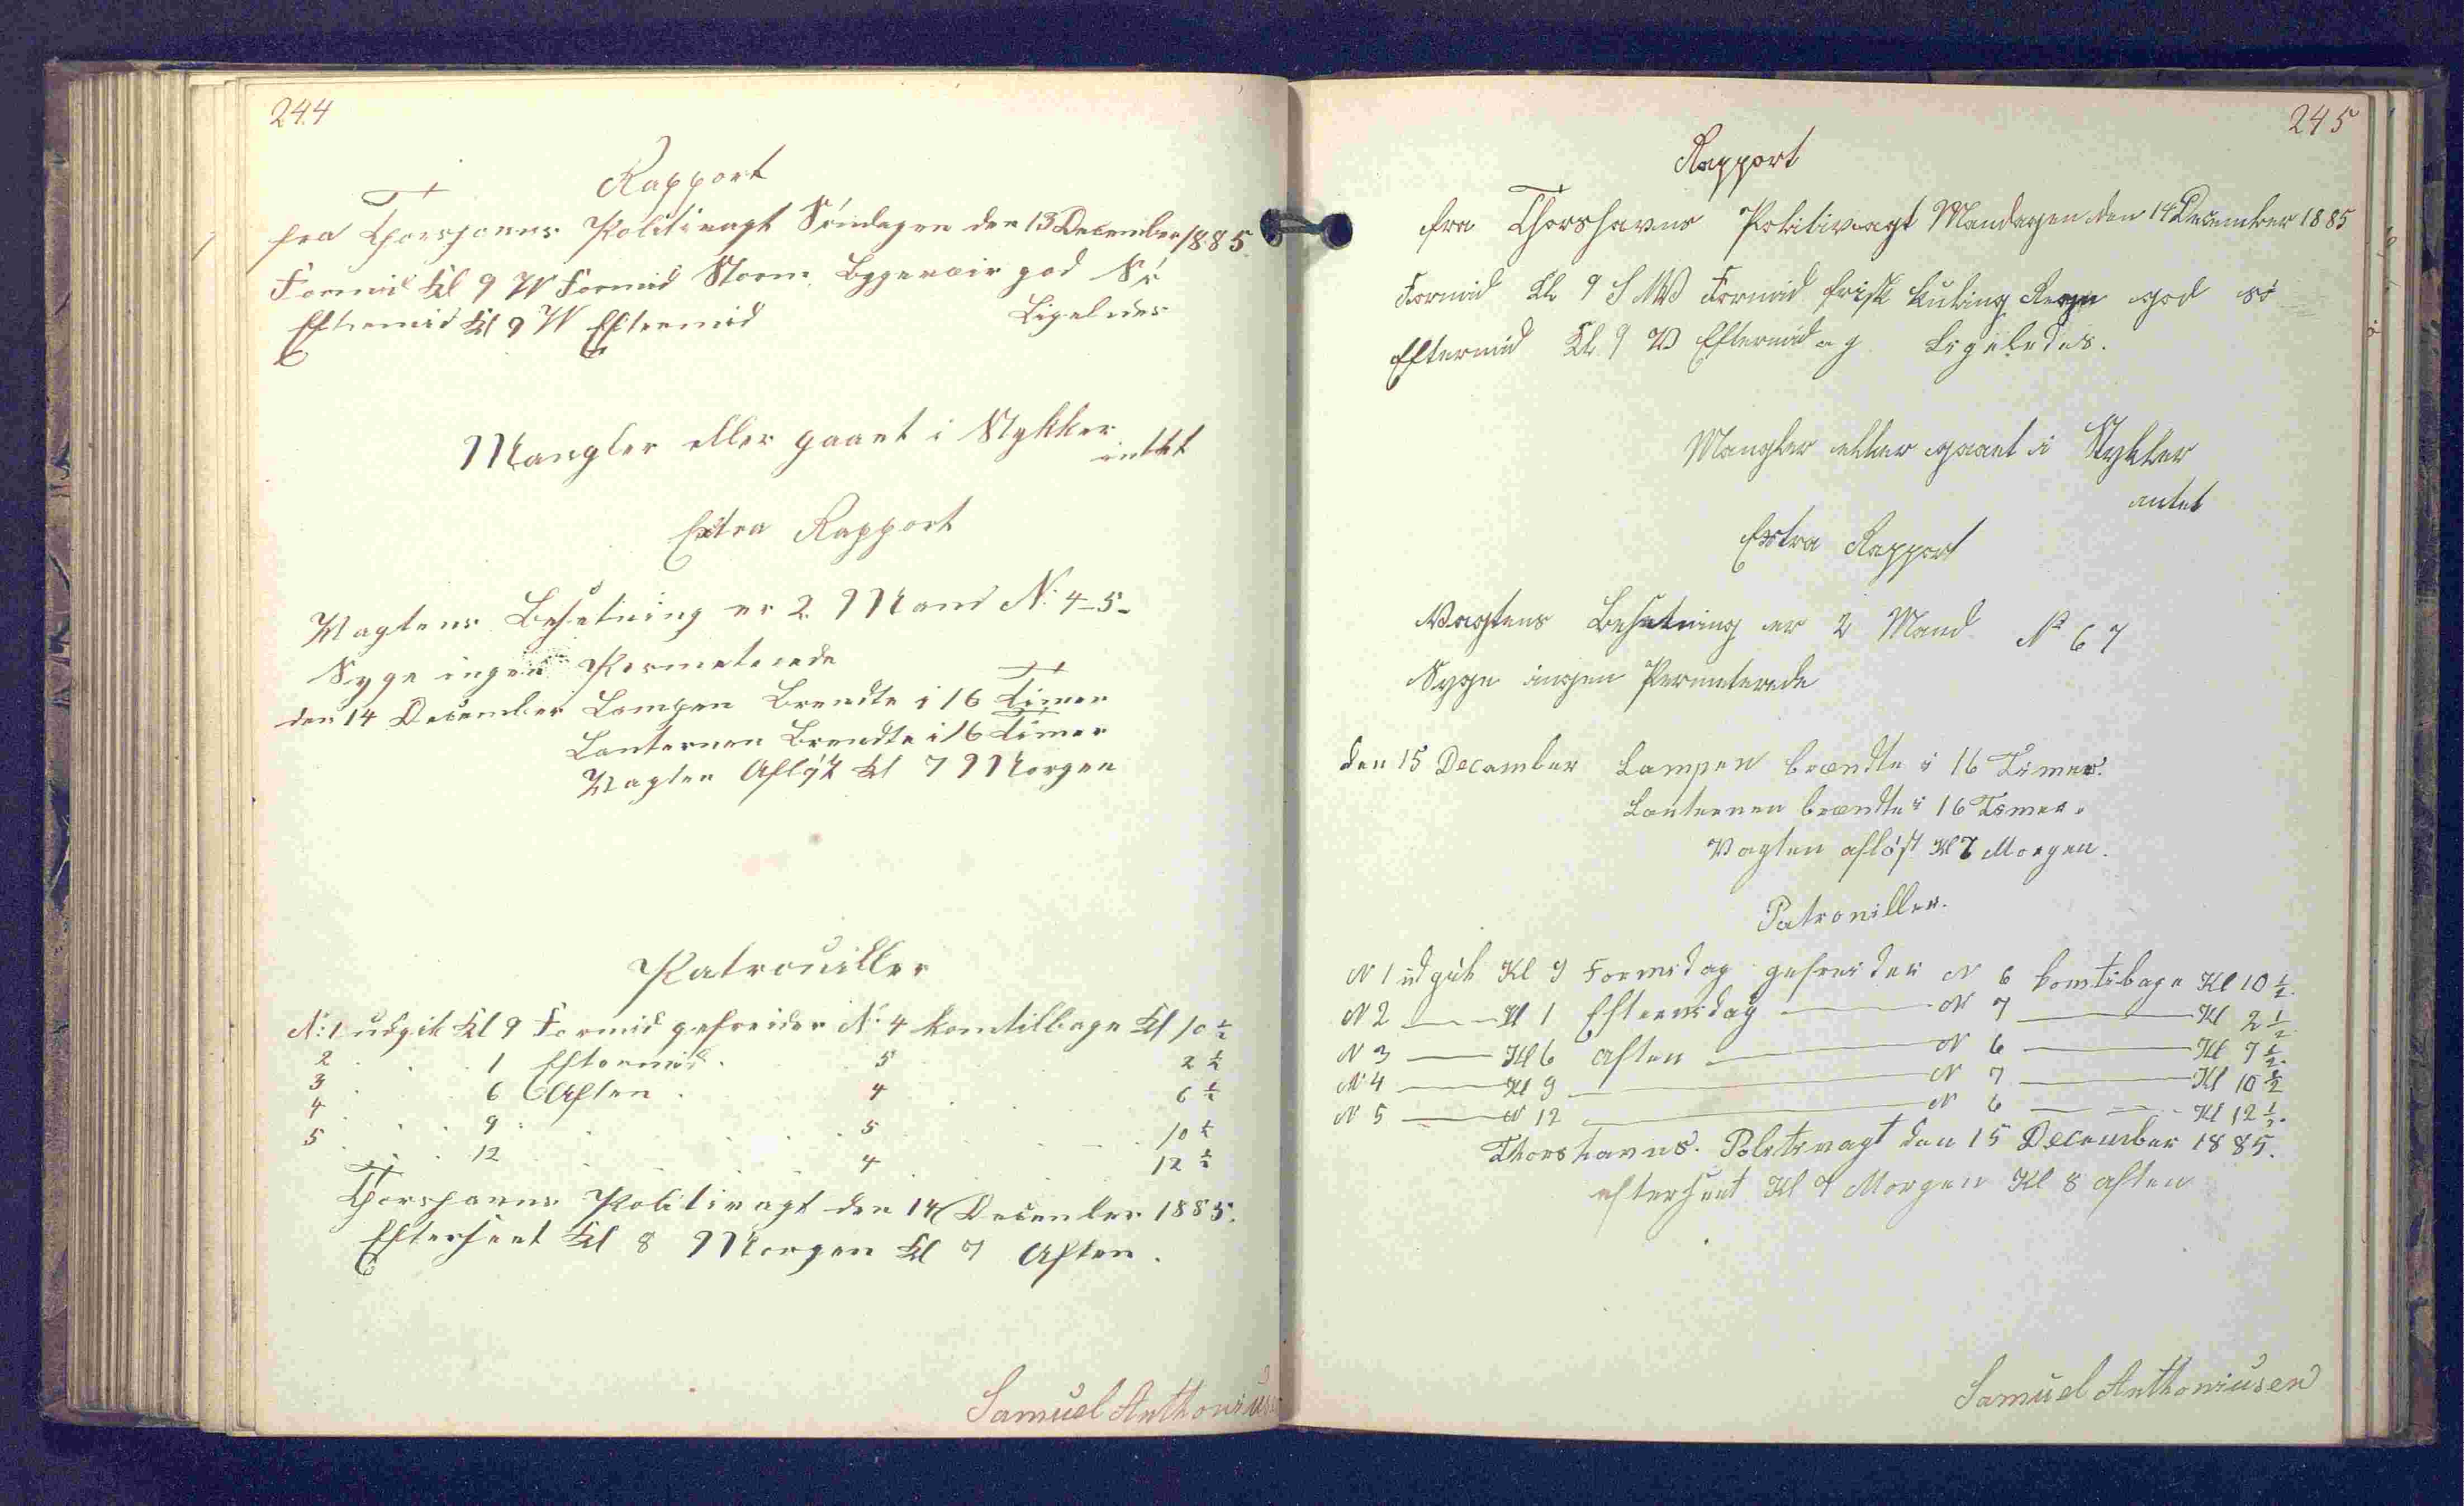 244
Rapport
fra Thorshavns Politivagt Søndagen den 13 December 1885.
Formid Kl 9 W Formid Storm Bygeveir god Sø
Eftermid Kl 9 W Eftermid Ligeledes
Mangler eller gaaet i Stykker
intet
Extra Rapport
Vagtens Besetning er 2 Mand N: 4-5-
Syge ingen Permeterede
den 14 December Lampen Brendte i 16 Timer
Lanternen Brendte i 16 Timer
Vagten Afløst Kl 7 Morgen
Patrouiller
N: 1 udgik Kl 9 Formid gefreider N: 4 kom tilbage Kl 10 ½
2 . . 1 Eftermid . 5 2 ½
3 . 6 Aften . 4 6 ½
4 . . . 9 . . . 5 . . 10 ½
5 . . . 12 . . . 4 . . 12 ½
Thorshavns Politivagt den 14 December 1885.
Efterseet Kl 8 Morgen Kl 7 Aften.
Samuel Anthonius
245
Rapport
fra Thorshavns Politivagt Mandagen den 14 December 1885
Formid Kl 9 S W Formid frisk kuling Regn god sø
Eftermid Kl 9 W Eftermidag Ligeledes.
Mangler eller gaaet i Stykker
intet
Extra Rapport
Vagtens Besetning er 2 Mand No 6 7
Syge ingen Permeterede
den 15 December Lampen brændte i 16 Timer.
Lanternen brændte i 16 Timer.
Vagten afløst Kl 7 Morgen.
Patrouiller.
N 1 udgik Kl 9 Formidag gefreider N 6 kom tibage Kl 10 ½.
N 2 — Kl 1 Eftermidag — N 7 — Kl 2 ½
N 3 — Kl 6 Aften — N 6 — Kl 7 ½.
N 4 — Kl 9 — N 7 — Kl 10 ½
N 5 — Kl 12 — N 6 — Kl 12 ½.
Thorshavns. Politivagt den 15 December 1885.
efterseet Kl 7 Morgen Kl 8 aften
Samuel Anthoniusen